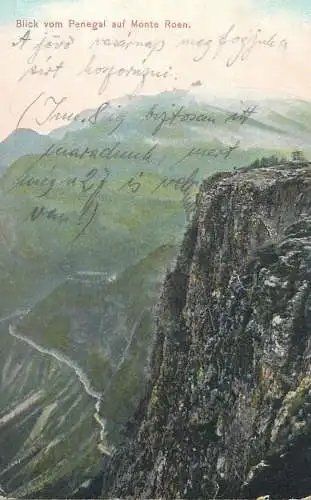 Blick vom Penegal auf Monte Roen.
A jövő vasárnap megfogjuk a
sírt hozni.
(Jun. 8ig biztosan itt
maradunk, mert
még a 27 is
van!)